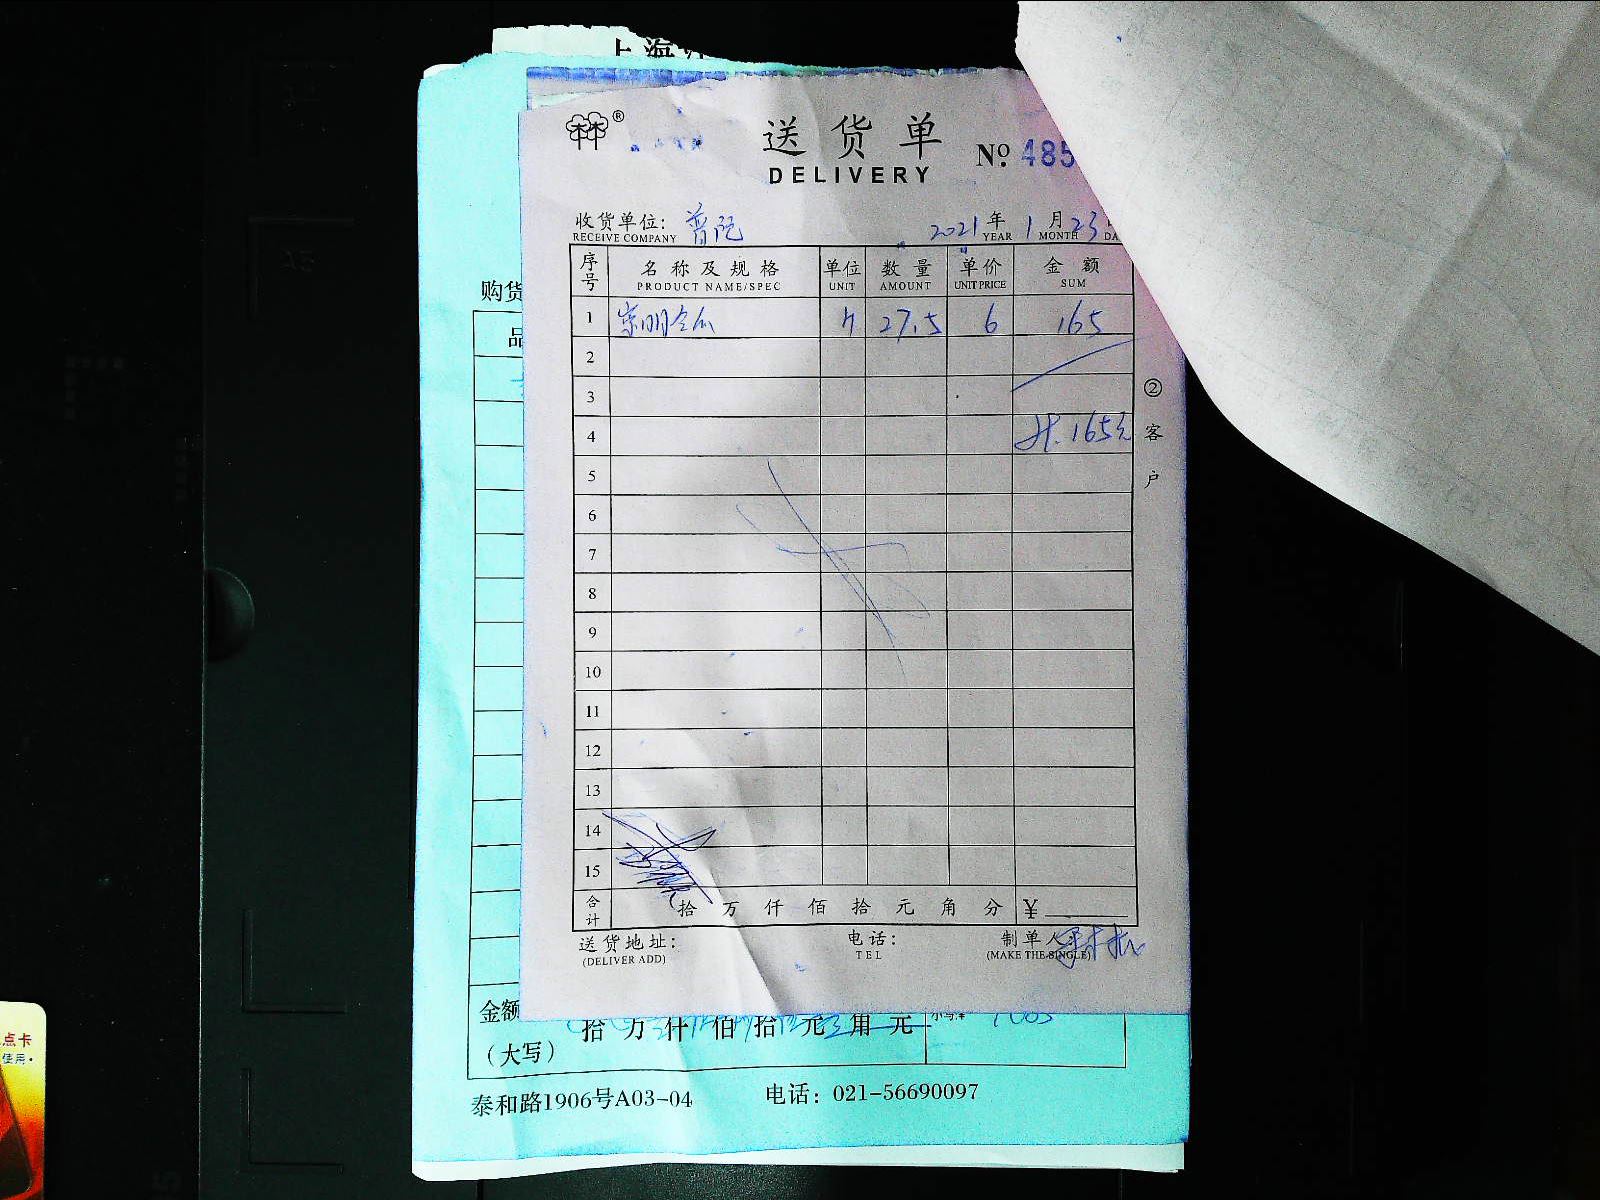 上海
林®
送货单
DELIVERY
No. 485
收货单位: 普陀
RECEIVE COMPANY
2021年1月23
YEAR MONTH DA
购货
品
序号 名称及规格 单位 数量 单价 金额
PRODUCT NAME/SPEC UNIT AMOUNT UNIT PRICE SUM
1 崇明金瓜 27.5 6 165
2
3
4 共.165元
5
6
7
8
9
10
11
12
13
14
15
②客户
合计 拾万仟佰拾元角分 ¥
送货地址: 电话: 制单人:
(DELIVER ADD) TEL (MAKE THE SINGLE)
金额 拾万仟佰拾元角元
(大写)
泰和路1906号A03-04 电话: 021-56690097
点卡
使用·